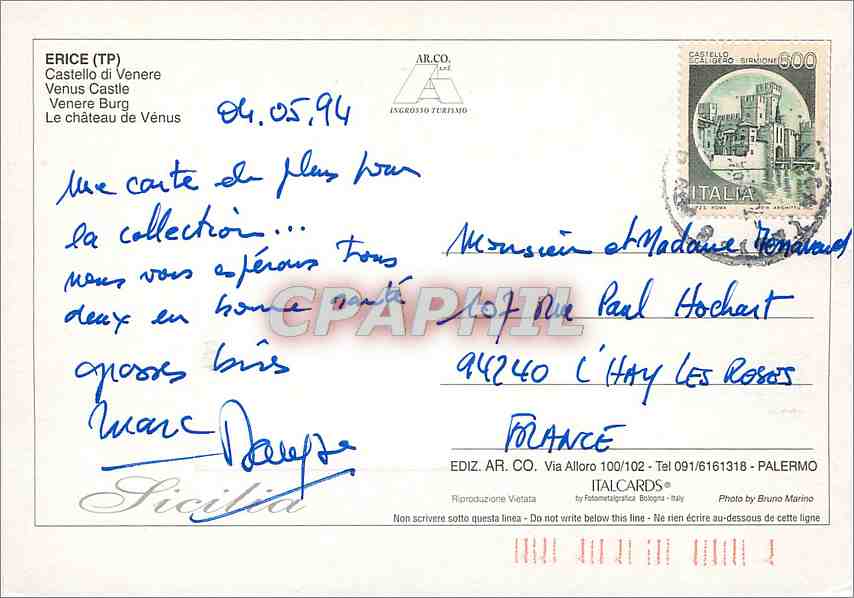 ERICE (TP)
Castello di Venere
Venus Castle
Venere Burg
Le château de Vénus
AR.CO.
s.r.l.
INGROSSO TURISMO
CASTELLO
SCALIGERO SIRMIONE 600
ITALIA
04.05.94
une carte de plus pour
la collection...
nous vous espérons tous
deux en bonne santé
grosses bises
Marc
Monsieur et Madame
107 rue Paul Hochart
94240 L'HAY LES ROSES
FRANCE
CPAPHIL
EDIZ. AR. CO. Via Alloro 100/102 - Tel 091/6161318 - PALERMO
ITALCARDS®
Riproduzione Vietata by Fotometalgrafica Bologna - Italy Photo by Bruno Marino
Sicilia
Non scrivere sotto questa linea - Do not write below this line - Ne rien écrire au-dessous de cette ligne